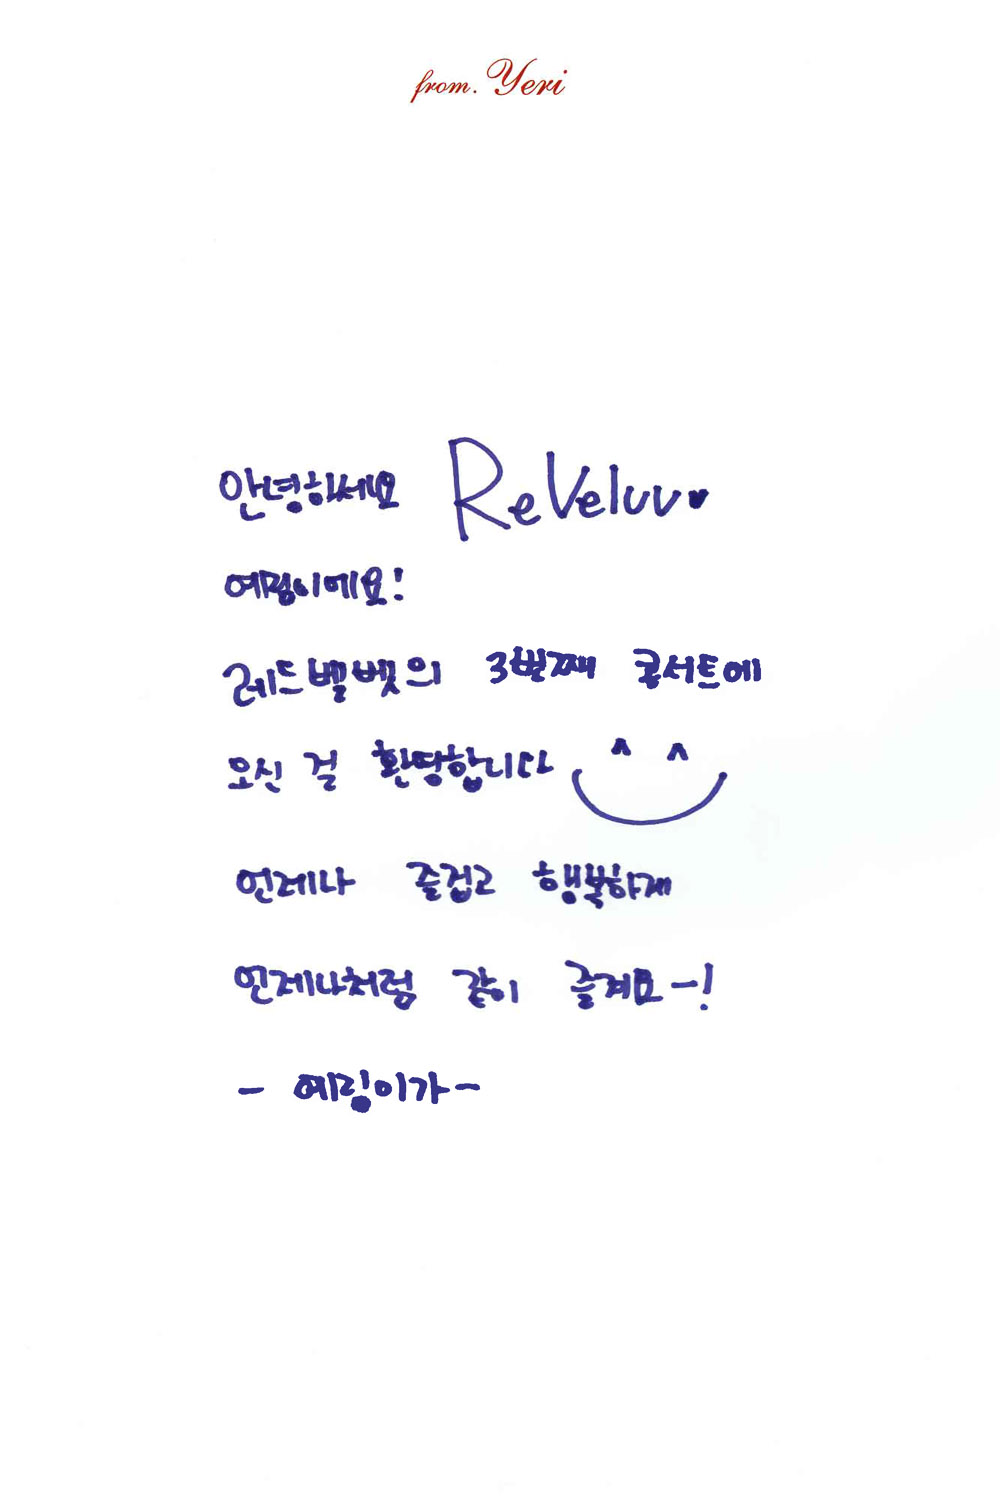 from. Yeri
안녕하세요 ReVeluv♥
예링이에요!
레드벨벳의 3번째 콘서트에
오신 걸 환영합니다 ^ ^
언제나 즐겁고 행복하게
언제나처럼 같이 즐겨요-!
- 예링이가 -